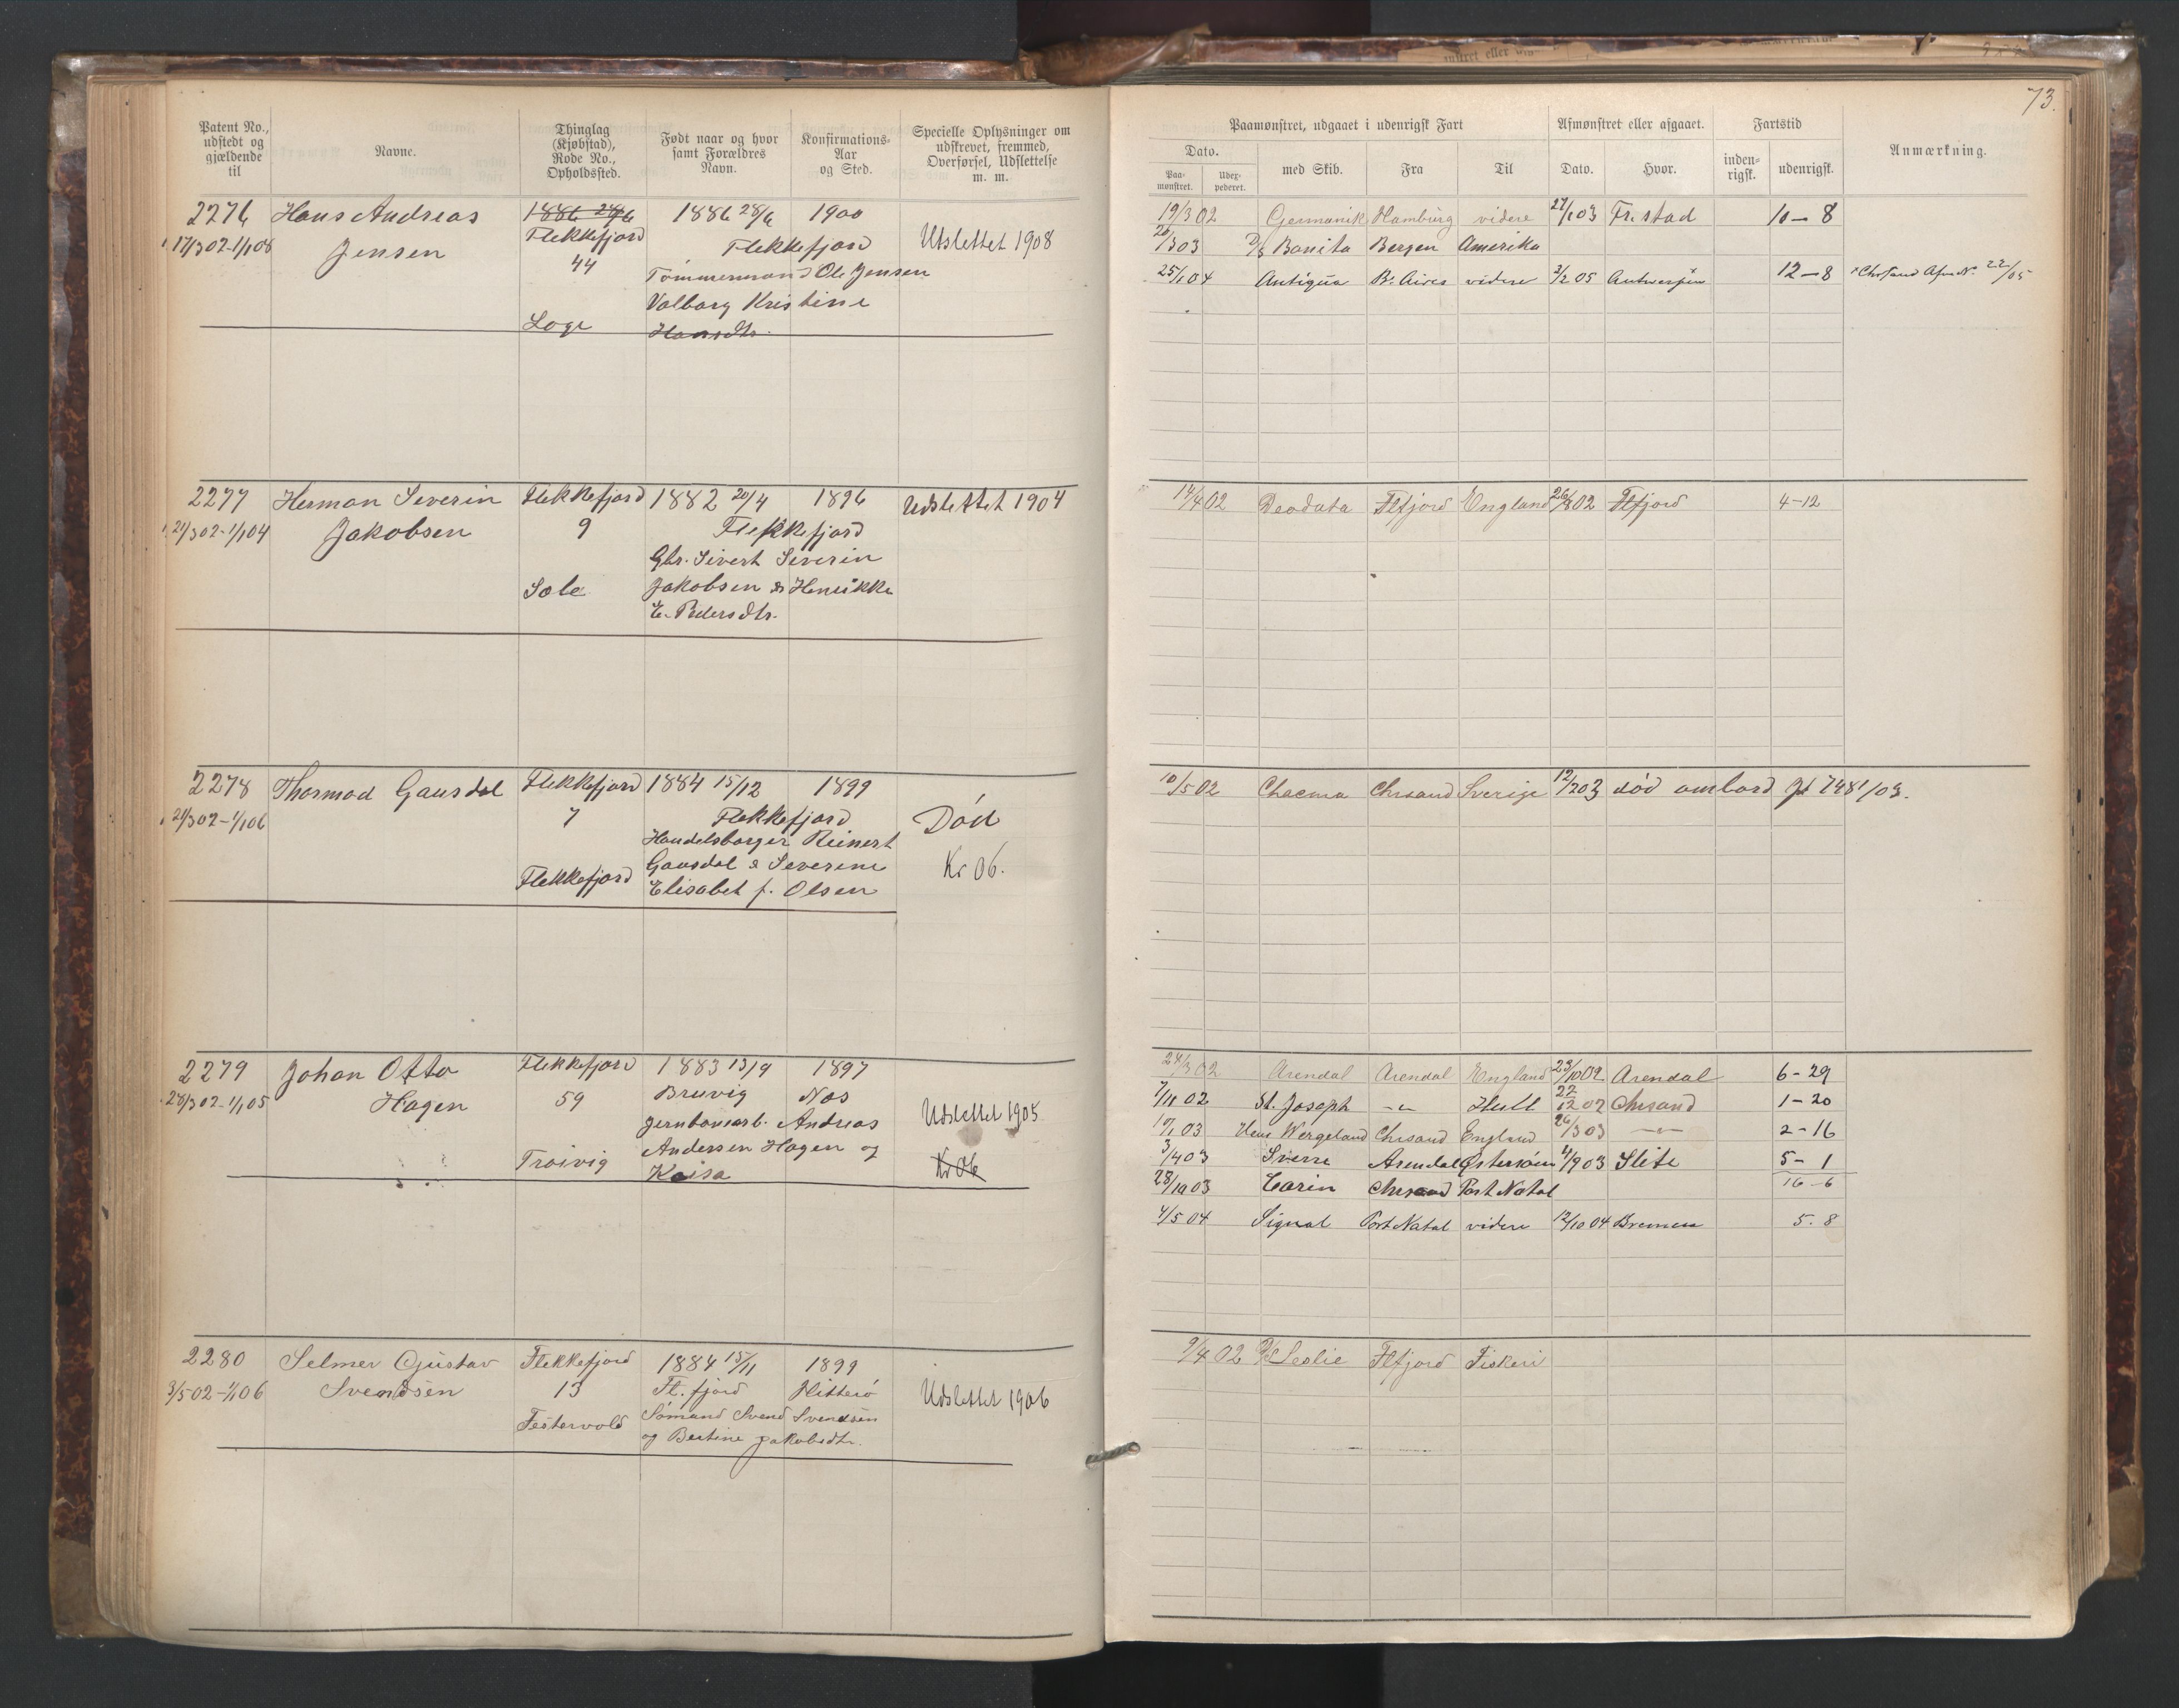 73.
Patent No., udstedt og gjældende til
Navne.
Thinglag (Kjøbstad), Rode No., Opholdssted.
Født naar og hvor samt Forældres Navn.
Konfirmations-Aar og Sted.
Specielle Oplysninger om udskrevet, fremmed, Overførsel, Udslettelse m. m.
Paamønstret, udgaaet i udenrigsk Fart
Afmønstret eller afgaaet.
Fartstid
Anmærkning.
Dato.
med Skib.
Fra
Til
Dato.
Hvor.
inden-rigsk.
udenrigsk.
Paa-mønstret.
Uder-pederet.
2276 Hans Andreas 1886 28/6 1886 28/6 1900
17/3 02-1/1 08 Jensen Flekkefjord Flekkefjord Utslettet 1908
44 Tømmermand Ole Jensen
Valborg Kristine
Loge Hansdtr.
19/3 02 Germanik Hamburg videre 27/1 03 Fr.stad 10-8
20/3 03 D/S Bonita Bergen Amerika
25/1 04 Antigua B. Aires videre 2/2 05 Antwerpen 12-8 Chrsand Afm. N. 22/05
2277 Herman Severin Flekkefjord 1882 20/4 1896 Udslettet 1904
21/3 02-1/1 04 Jakobsen 9 Flekkefjord
Gbr. Sivert Severin
Sole Jakobsen & Henrikke
E. Pedersdtr.
14/4 02 Deodata Flfjord England 26/8 02 Flfjord 4-12
2278 Thormod Gausdal Flekkefjord 1884 15/12 1899
21/3 02-1/1 06 7 Flekkefjord Død
Handelsborger Reinert
Gausdal & Severine Kr 06.
Flekkefjord Elisabet f. Olsen
10/5 02 Chacma Chrsand Sverige 12/2 03 død ombord Jl 748/03.
2279 Johan Otto Flekkefjord 1883 13/9 1897
28/3 02-1/1 05 Hagen 59 Bruvig Nos
Jernbanearb. Andreas Udslettet 1905
Andersen Hagen og
Troivig Kaisa Kr 06
24/3 02 Arendal Arendal England 23/10 02 Arendal 6-29
7/11 02 St. Joseph -"- Hull 22/12 02 Chrsand 1-20
10/1 03 Henr Wergeland Chrsand England 26/3 03 -"- 2-16
3/4 03 Sverre Arendal Østersøen 4/9 03 Slite 5-1
28/10 03 Carin Chrsand Port Natal 16-6
4/5 04 Signal Port Natal videre 12/10 04 Bremen 5.8
2280 Selmer Gustav Flekkefjord 1884 15/11 1899
3/5 02-1/1 06 Svendsen 13 Fl.fjord Hitterø Udslettet 1906
Festervold Sømand Svend Svendsen
og Bertine Jakobsdtr.
9/4 02 D/S Leslie Flfjord Fiskeri